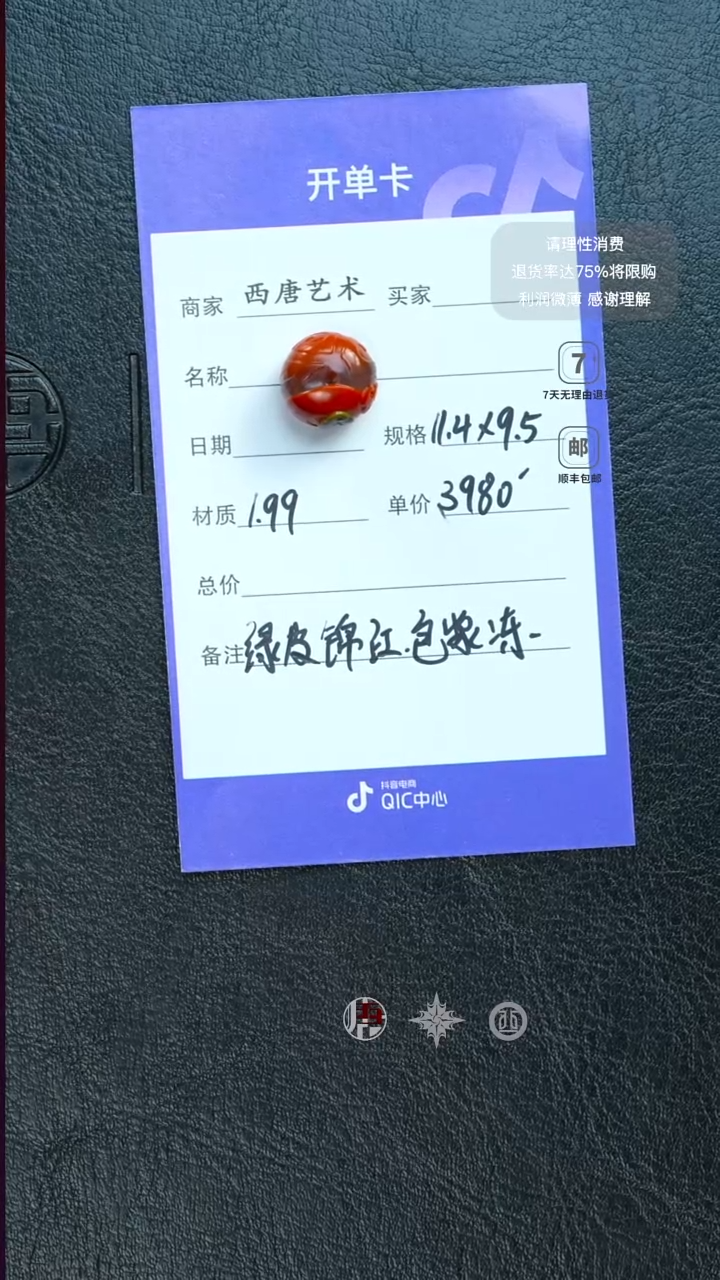 开单卡
请理性消费
退货率达75%将限购
利润微薄 感谢理解
商家 西唐艺术 买家
名称
7
7天无理由退
日期 规格 11.4×9.5
邮
顺丰包邮
材质 1.99 单价 3980
总价
备注 绿皮锦红.包浆冻-
抖音电商
QIC中心